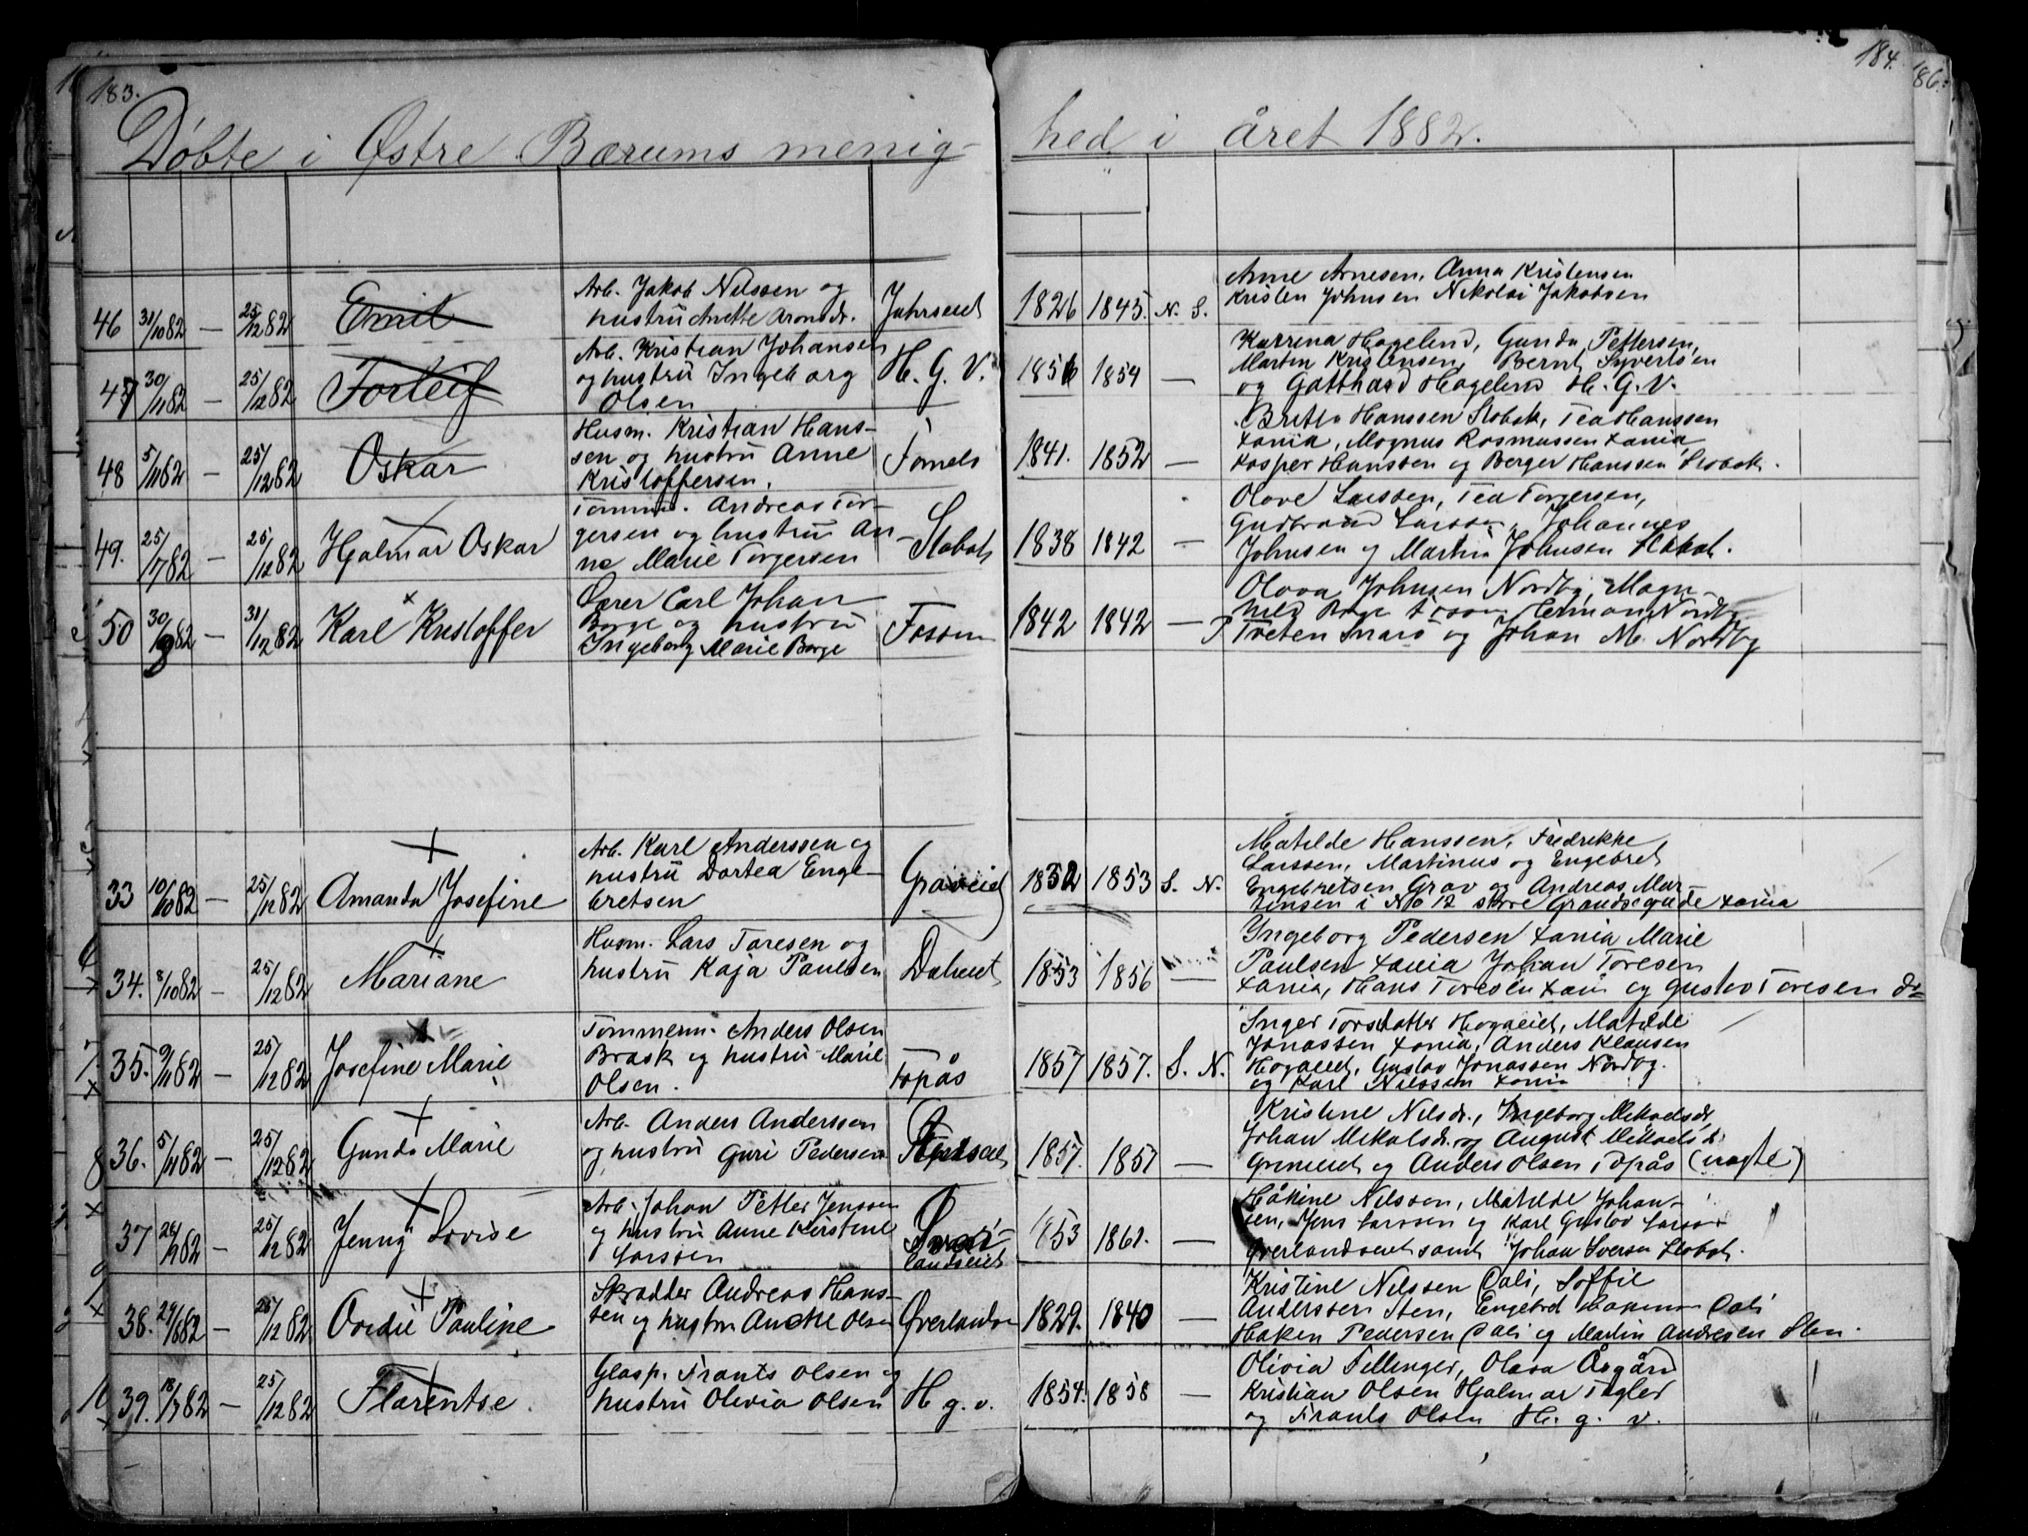 183.
184.
186.
Døbte i Østre Bærums menig-
hed i året 1882.
46 31/10 82 — 25/12 82 Emil
Arb. Jakob Nilssen og
hustru Anette Aronsdr.
Jahrseiet
1826 1845. N. S.
Anne Arnesen, Anna Kristensen
Kristen Johnsen Nikolai Jakobsen
47 30/11 82 — 25/12 82 Torleif
Arb. Kristian Johansen
og hustru Ingeborg
Olsen
H. G. V.
1856 1854 —
Karrina Hagelund, Gunda Pettersen,
Martin Kristensen, Bernt Syvertsen
og Gotthard Hagelund H. G. V.
48 5/11 82 — 25/12 82 Oskar
Husm. Kristian Hans-
sen og hustru Anne
Kristoffersen.
Fornebo
1841. 1852 —
Hanssen Stabæk, Tea Hanssen
Xania, Magnus Rasmussen Xania
Kasper Hanssen og Berger Hanssen Stabæk.
49. 25/7 82 25/12 82 Hjalmar Oskar
Tømmerm. Andreas Tor-
gersen og hustru An-
na Marie Torgersen
Stabæk
1838 1842 —
Olave Larssen, Tea Torgersen,
Gudbrand Larssen, Johannes
Johnsen og Martin Johnsen Stabæk.
50 30/ 82 — 31/12 82 Karl Kristoffer
Carl Johan
Borge og hustru
Ingeborg Marie Borge
Fossum
1842 1842 —
Olava Johnsen Nordby, Magn-
hild Borge Herman Nordby
Tveten Snarø og Johan M. Nordby
33 10/10 82 — 25/12 82 Amanda Josefine
Arb. Karl Anderssen og
hustru Dortea Enge-
bretsen
Graveiet
1852 1853 S. N.
Matilde Hanssen, Fredrikke
Larssen, Martinus og Engebret
Engebretsen Grav og Andreas Mar-
tinsen i No 12 Grændsegade Xania
34. 8/10 82 — 25/12 82 Mariane
Husm. Lars Toresen og
hustru Kaja Paulsen
Daleiet
1853 1856 —
Ingeborg Pedersen Xania Marie
Paulsen Xania Johan Toresen
Xania, Hans Toresen Xania og Gustav Toresen do
35. 9/11 82 — 25/12 82 Josefine Marie
Tømmerm. Anders Olsen
Brask og hustru Marie
Olsen.
Topås
1857 1857. S. N.
Inger Torsdatter Hagaeiet, Matilde
Jonassen Xania, Anders Klausen
Hagaeiet, Gustav Jonassen Nordby
og Karl Nilssen Xania
36. 5/11 82 — 25/12 82 Gunda Marie
Arb. Anders Anderssen
og hustru Guri Pedersen
1857. 1857 —
Kristine Nilsdr., Ingeborg Mikaelsdr,
Johan Mikalsen og August Mikaels
Grinieiet og Anders Olsen Topås (vagte)
37 26/11 82 — 25/12 82 Jenny Lovise
Arb. Johan Petter Jenssen
og hustru Anne Kerstine
Larssen
landseiet
1853 1861. —
Håkine Nilssen, Matilde Johan-
sen, Jens Larssen og Karl Gustav Larssen
Øverlandseiet samt Johan Iversen Stabæk.
38. 29/ 82 — 25/12 82 Ovedie Pauline
Skrædder Andreas Hans-
sen og hustru Anette Olsen
Øverlandsei
1829. 1840 —
Kristine Nilssen Dali, Soffie
Anderssen Sten, Engebret Haken Dali
Haken Pedersen Dali og Martin Andresen Sten.
39. 18/7 82 — 25/12 82 Florentse.
Glasp. Frants Olsen og
hustru Olivia Olsen
H g. v.
1854. 1858 —
Olivia Fellinger, Olava Åsgård
Kristian Olsen Hjalmar Tegler
og Frants Olsen H. g. v.